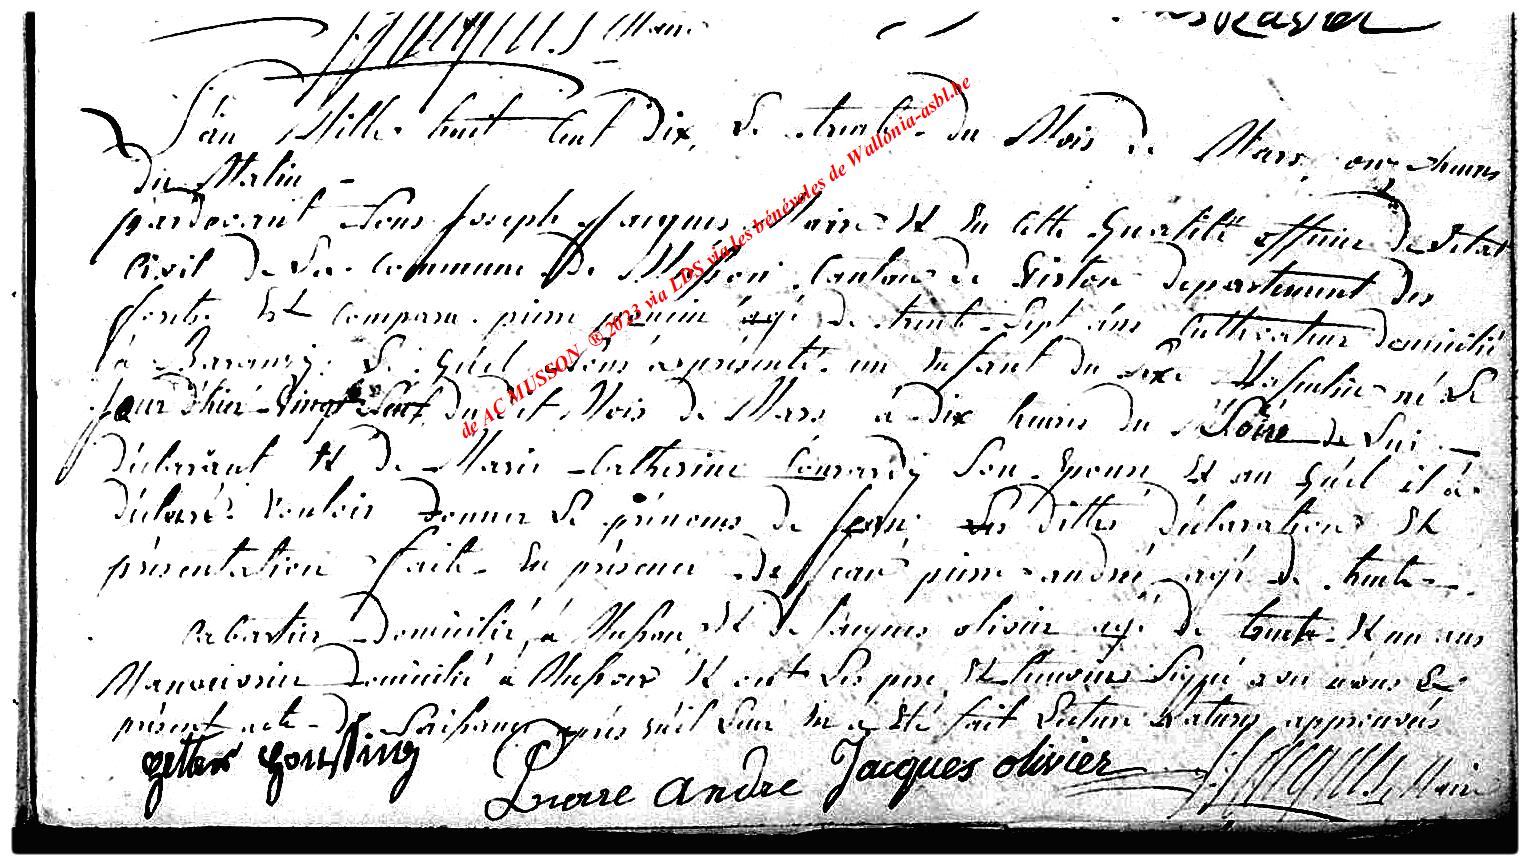 Maire
L'an Mille huit Cent dix, Le trente du Mois de Mars, onze heures
du Matin
pardevant Nous Joseph Jacques, Maire Et En Cette Qualité officier de L'etat
Civil de La Commune de Musson Canton de Virton departement des
forêts Est Comparu pierre agé de trente Sept ans Cultivateur domicilié
à Baranzy. Le Quel Nous à présenté un Enfant du sexe Masculin né Le
jour d'hier Vingt Neuf du dit Mois de Mars à dix heures du Soire de Lui
déclarant Et de Marie Catherine Son Epouse Et au Quel il à
déclaré Vouloir donner Le prénoms de Jean, Les dittes déclaration Et
présentation faite En présence de Jean pierre andré agé de trente
Cabartier domicilié à Musson, Et de Jacques olivier agé de trente Et un ans
Manouvrier domicilié à Musson Et ont Les pere Et temoins Signé avec nous Le
présent acte de Naissance après qu'il Leur En à Eté fait Lecture Ratures approuvés
Pierre andre Jacques olivier Jacques Maire
de AC MUSSON ® 2023 via LDS via les bénévoles de Wallonia-asbl.be